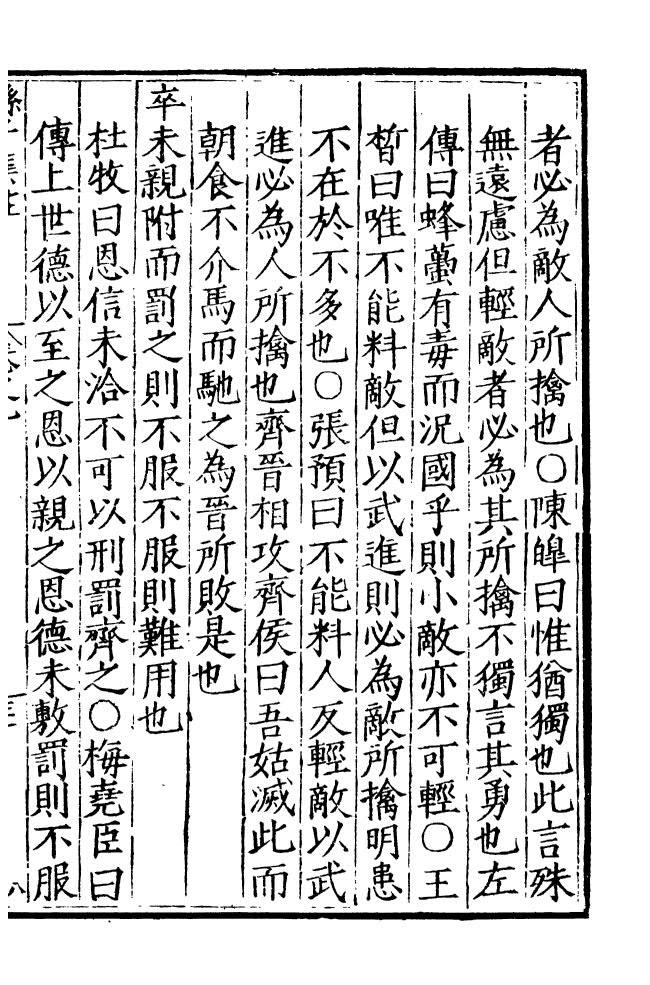 者必為敵人所擒也○陳皥曰惟猶獨也此言殊
無遠慮但輕敵者必為其所擒不獨言其勇也左
傳曰蜂蠆有毒而況國乎則小敵亦不可輕○王
晳曰唯不能料敵但以武進則必為敵所擒明患
不在於不多也○張預曰不能料人反輕敵以武
進必為人所擒也齊晉相攻齊侯曰吾姑滅此而
朝食不介馬而馳之為晉所敗是也
卒未親附而罰之則不服不服則難用也
杜牧曰恩信未洽不可以刑罰齊之○梅堯臣曰
傳上世德以至之恩以親之恩德未敷罰則不服